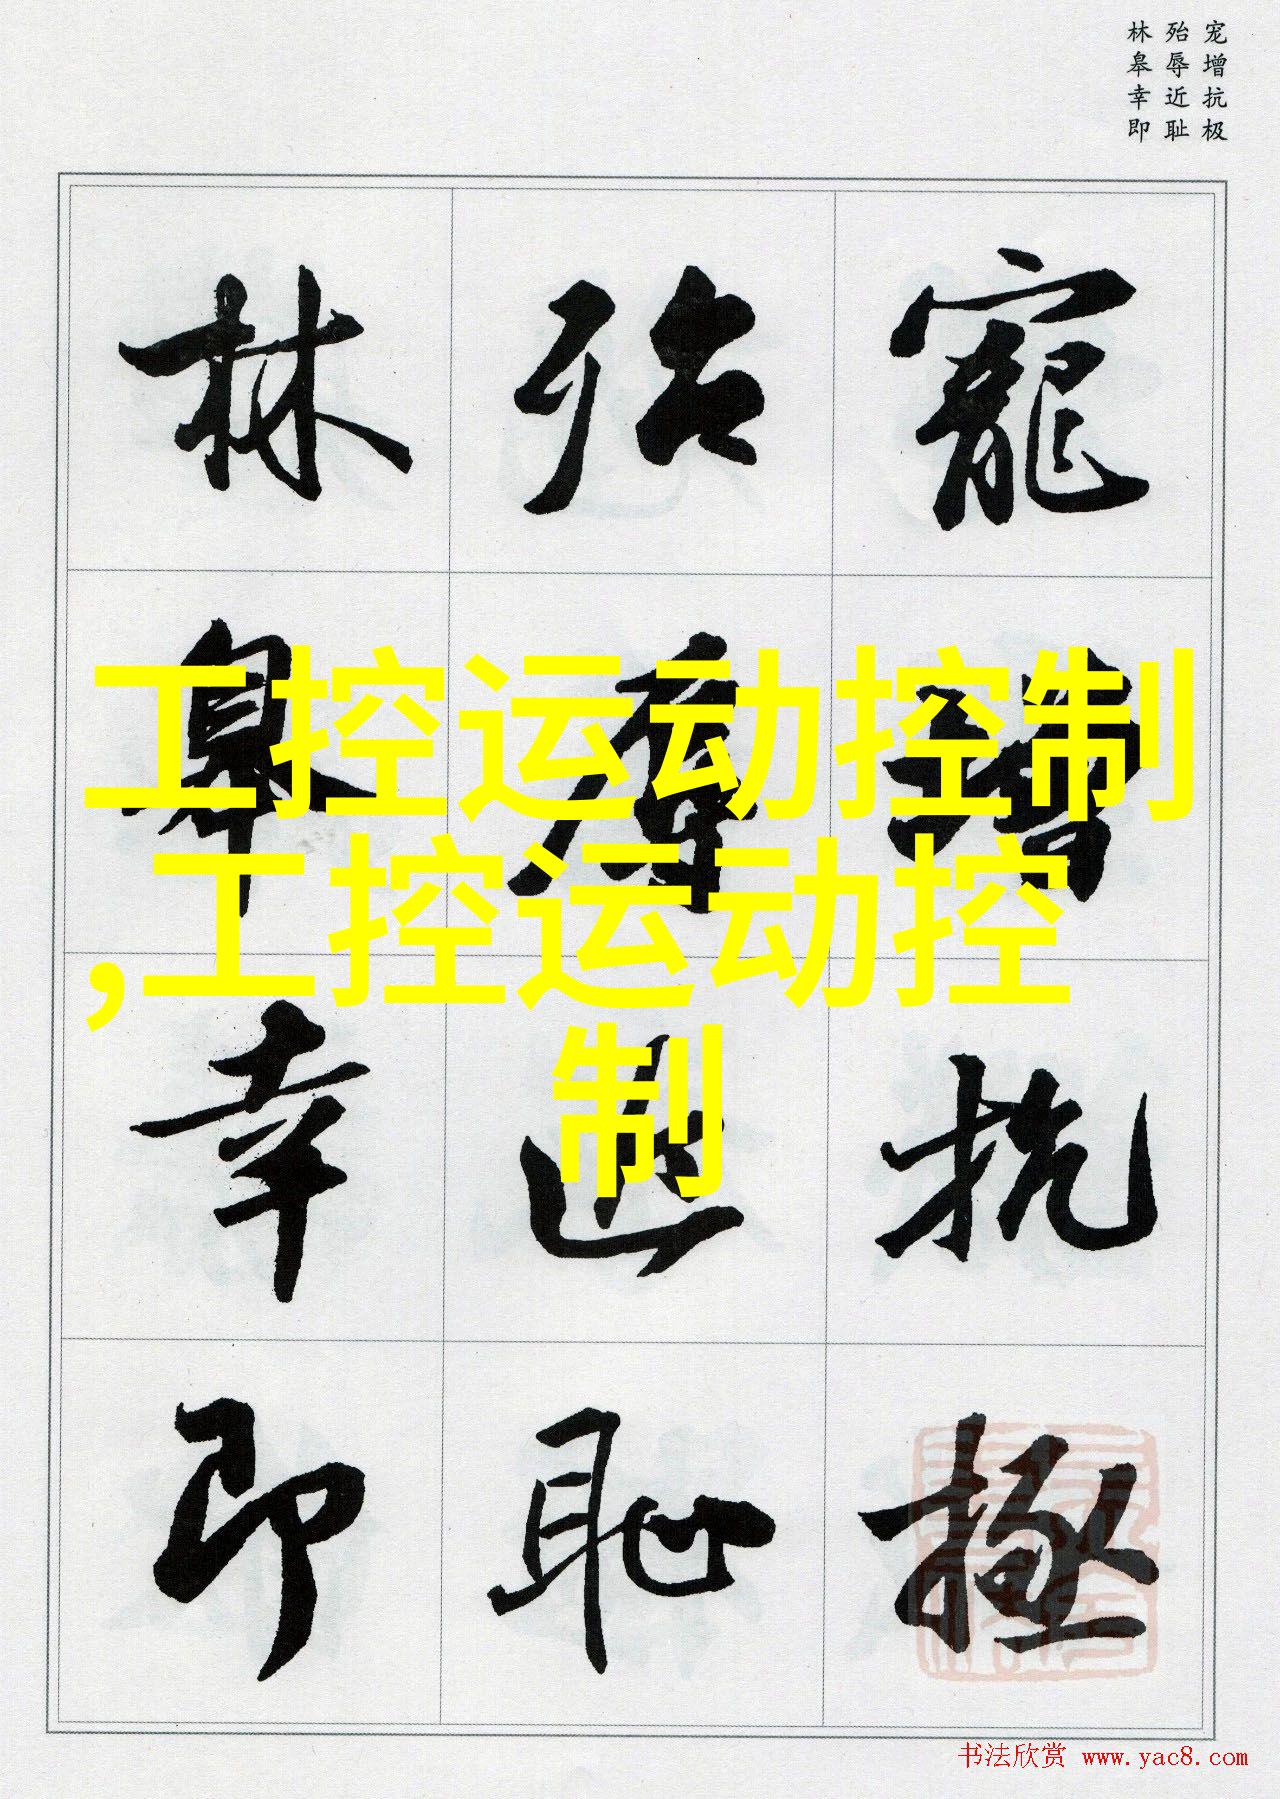 宠增抗极
殆辱近耻
林皋幸即
寵增抗極
殆辱近恥
林皋幸即
工控运动控制
,工控运动控
制
书法欣赏 www.yac8.com